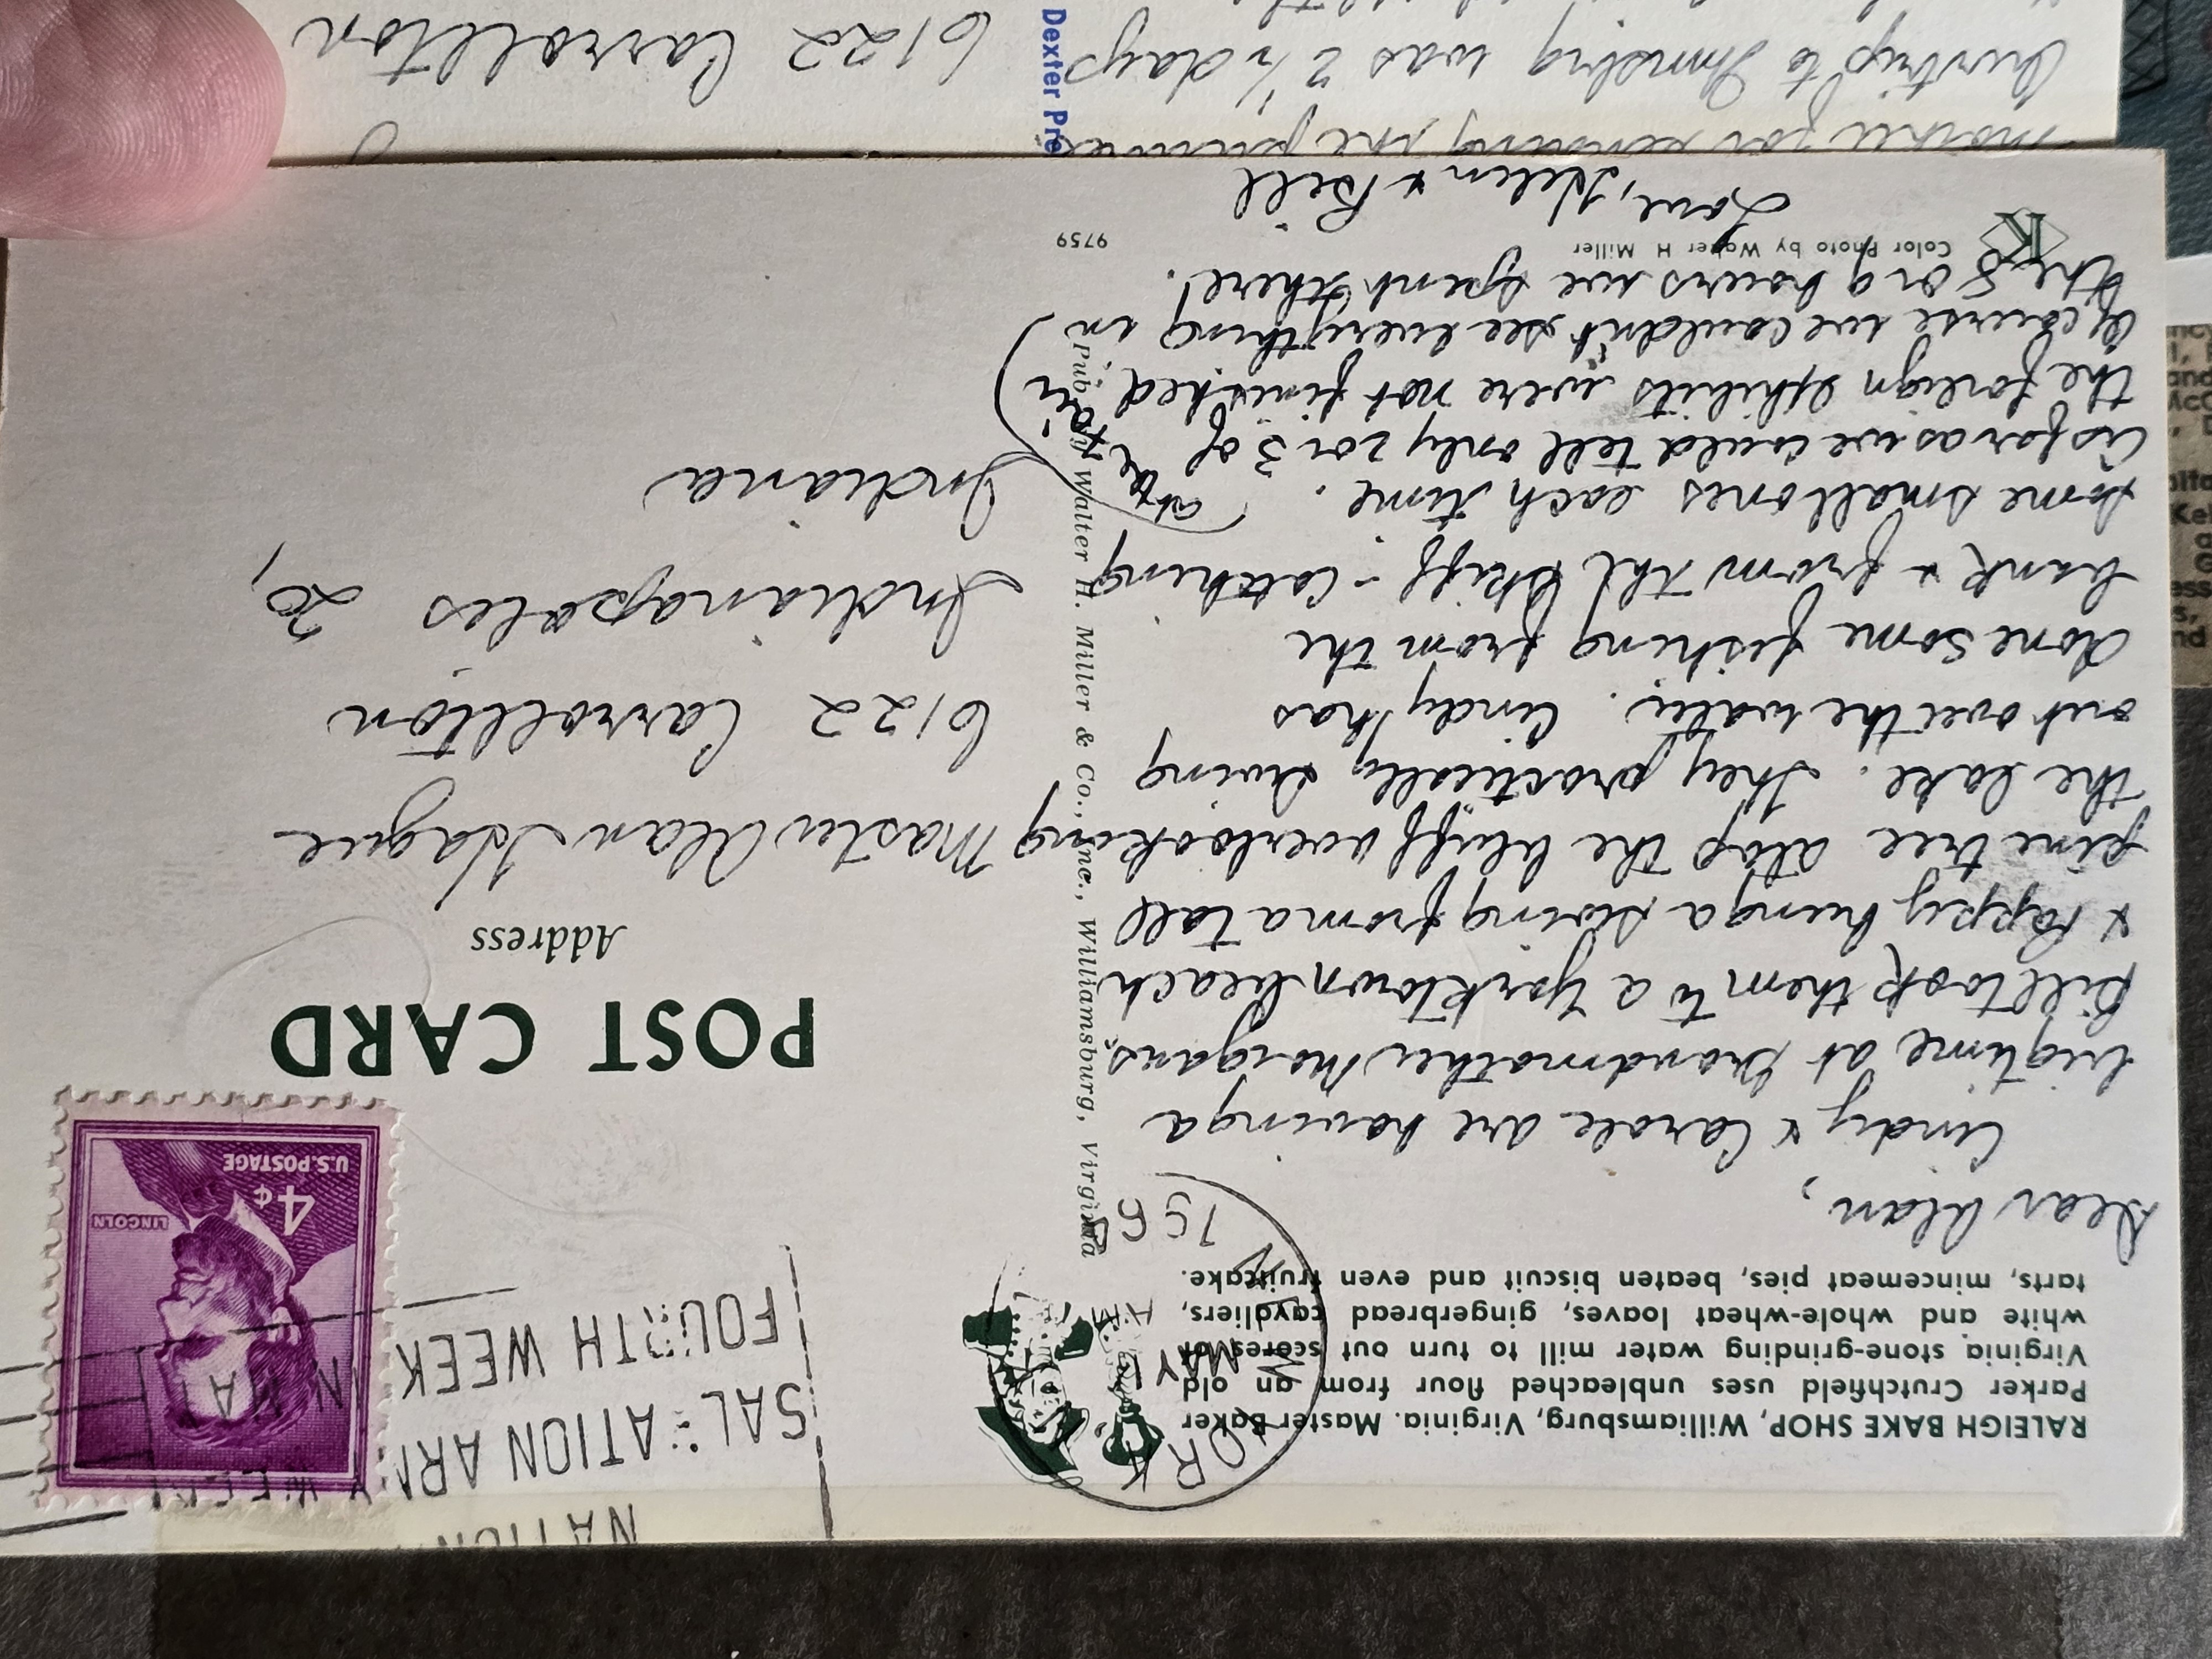 RALEIGH BAKE SHOP, Williamsburg, Virginia. Master Baker
Parker Crutchfield uses unbleached flour from an old
Virginia stone-grinding water mill to turn out scores of
white and whole-wheat loaves, gingerbread cavaliers,
tarts, mincemeat pies, beaten biscuit and even fruitcake.
Dear Alan,
Cindy & Carole are having a
big time at Grandmother Morgans,
Bill took them to a Yorktown beach
& Pappy hung a swing from a tall
pine tree atop the bluff overlooking
the lake. They practically swing
out over the water. Cindy has
done some fishing from the
bank & from the skiff - catching
some small ones each time.
As far as we could tell only 2 or 3 of
the foreign exhibits were not finished
at the fair
Of course we couldn't see everything in
the 8 or 9 hours we spent there!
Love, Helen & Bill
Color Photo by Walter H Miller
9759
K
Pub. by Walter H. Miller & Co., Inc., Williamsburg, Virginia
YORK
MAY
196
NATION
SAL ATION ARM Y WEEK
FOURTH WEEK IN MAY
LINCOLN
4¢
U.S. POSTAGE
POST CARD
Address
Master Alan Hague
6122 Carrollton
Indianapolis 20,
Indiana
Dexter Pre
6122 Carrollton
Our trip to was 2 1/2 days
for sending the pictures